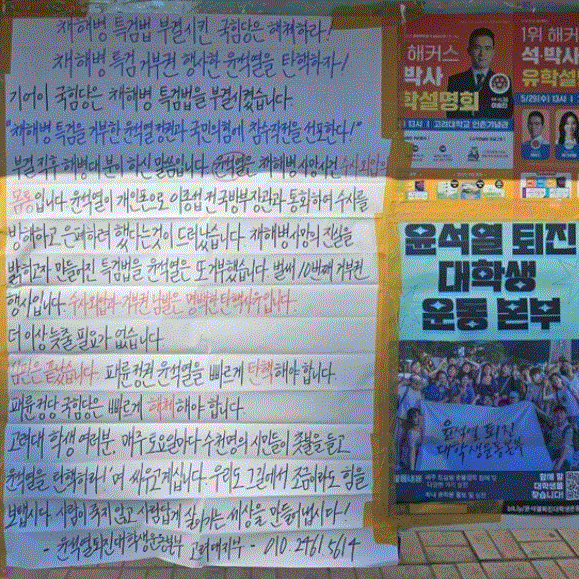 채해병 특검법 부결시킨 국힘당은 해체하라!
채해병 특검 거부권 행사한 윤석열을 탄핵하자!
기어이 국힘당은 채해병 특검법을 부결시켰습니다.
"채해병 특검을 거부한 윤석열정권과 국민의힘에 참수작전을 선포한다!"
부결 직후 해병대 분이 하신 말씀입니다. 윤석열은 채해병사망사건 수사외압의
몸통입니다. 윤석열이 개인폰으로 이종섭 전 국방부장관과 통화하여 수사를
방해하고 은폐하려 했다는것이 드러났습니다. 채해병사망의 진실을
밝히고자 만들어진 특검법을 윤석열은 또 거부했습니다. 벌써 10번째 거부권
행사입니다. 수사외압과 거부권 남발은 명백한 탄핵사유입니다.
더 이상 늦출 필요가 없습니다.
심판은 끝났습니다. 패륜정권 윤석열을 빠르게 탄핵해야 합니다.
패륜정당 국힘당은 빠르게 해체해야 합니다.
고려대 학생 여러분, 매주 토요일마다 수천명의 시민들이 촛불을 들고
윤석열을 탄핵하라!며 싸우고계십니다. 우리도 그길에서 조금이라도 힘을
보탭시다. 사람이 죽지 않고 사람답게 살아가는 세상을 만들어냅시다!
- 윤석열퇴진대학생운동본부 고려대지부 - 010.2461.5614
해커스
박사
학설명회
고려대학교
1위 해커
석·박사
유학설
5/29(수) 13시
윤석열 퇴진
대학생
운동 본부
윤석열 퇴진
대학생운동본부
함께 할
대학생을
찾습니다!